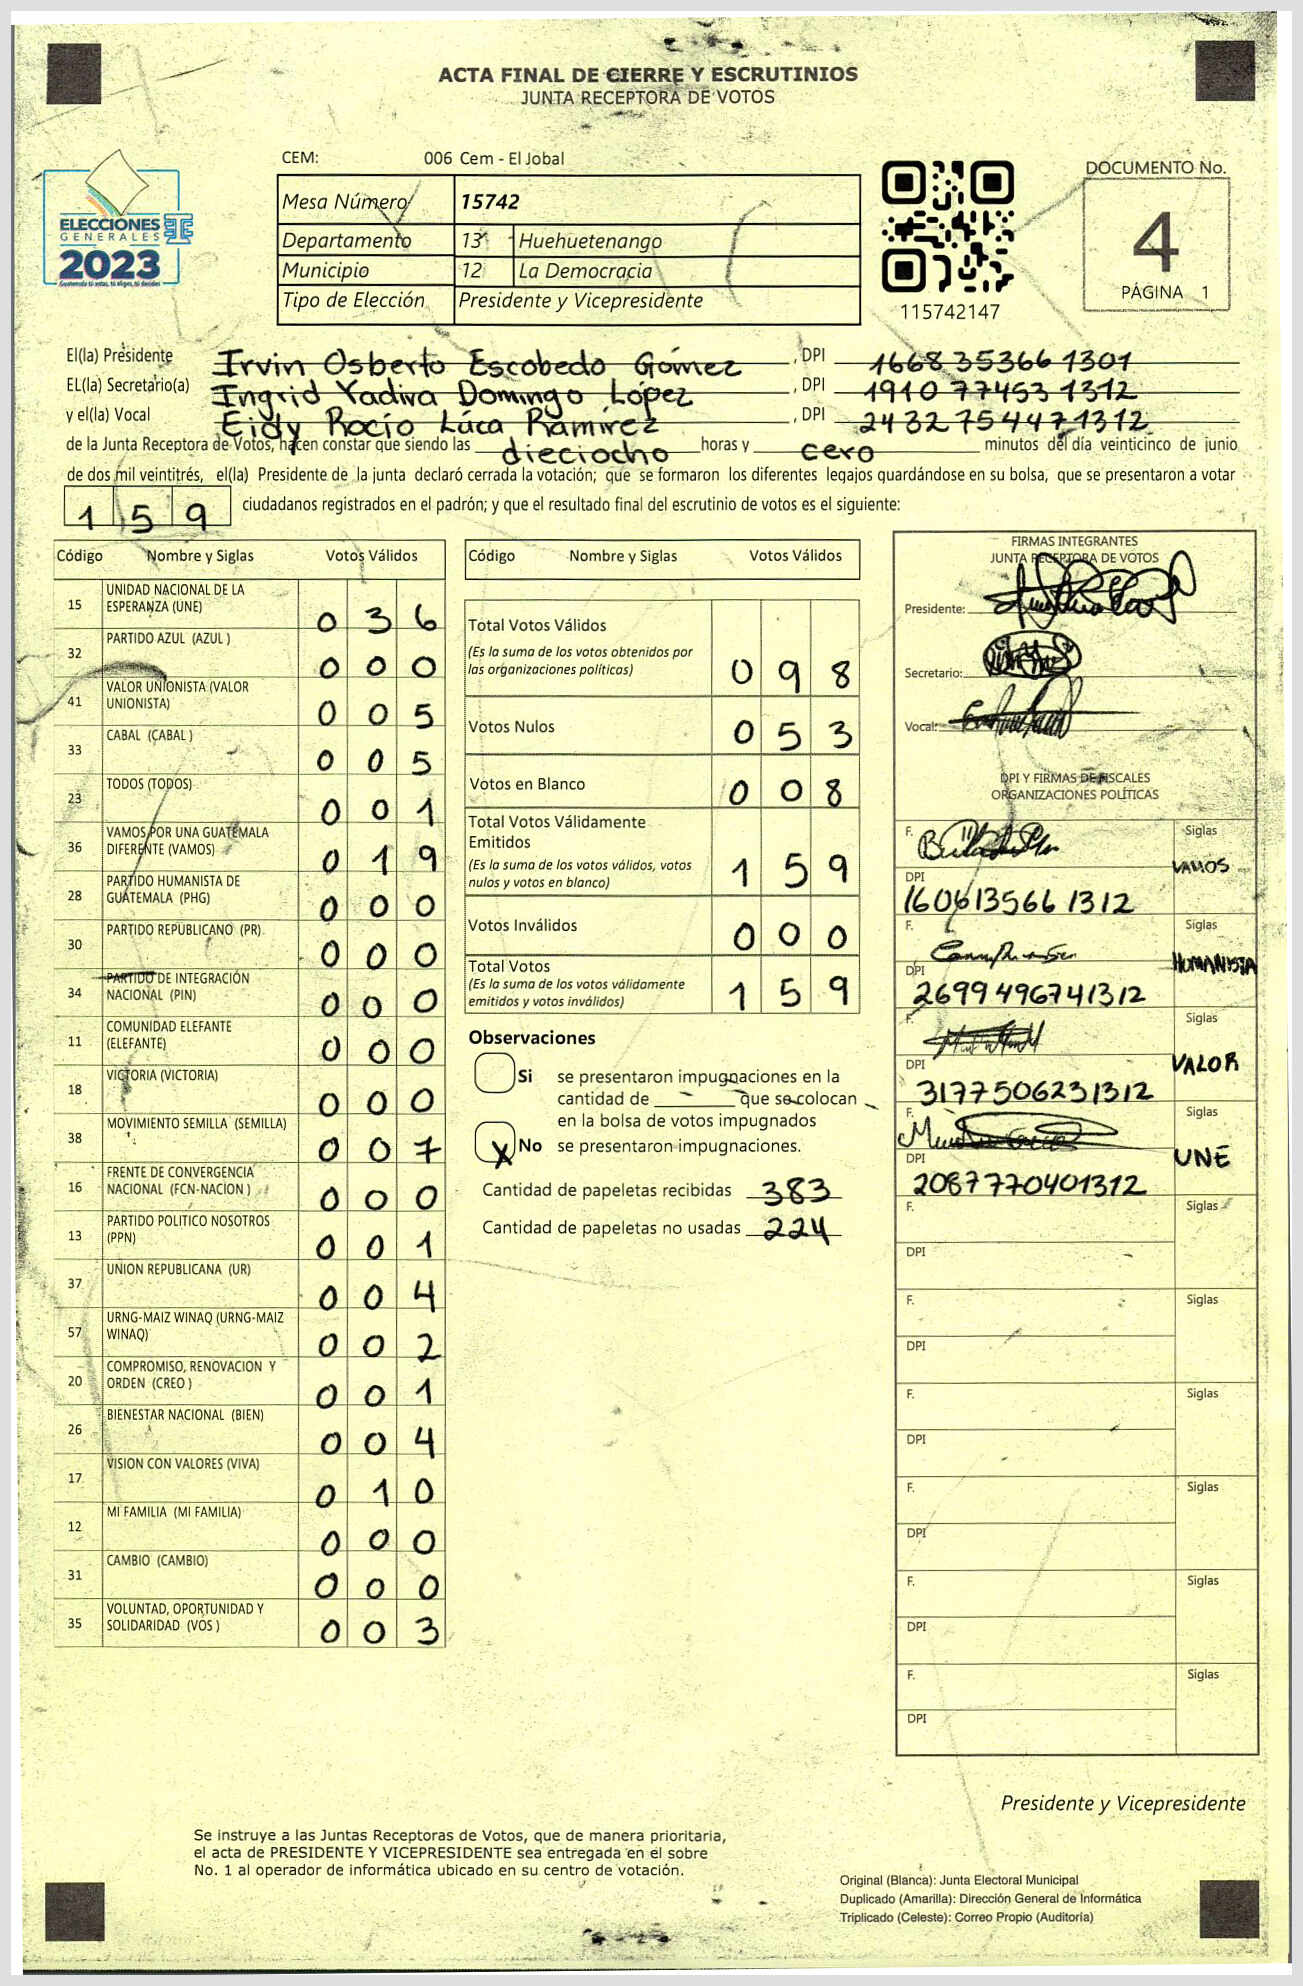 ACTA FINAL DE CIERRE Y ESCRUTINIOS
JUNTA RECEPTORA DE VOTOS
CEM: 006 Cem - El Jobal
ELECCIONES
GENERALES
2023
Guatemala tú votas, tú eliges, tú decides
Mesa Número 15742
Departamento 13 Huehuetenango
Municipio 12 La Democracia
Tipo de Elección Presidente y Vicepresidente
115742147
DOCUMENTO No.
4
PÁGINA 1
El(la) Presidente Irvin Osberto Escobedo Gómez, DPI 1668 35366 1301
EL(la) Secretario(a) Ingrid Yadira Domingo López, DPI 1910 77453 1312
y el(la) Vocal Eidy Rocío Lúca Ramírez, DPI 2432 75447 1312
de la Junta Receptora de Votos, hacen constar que siendo las dieciocho horas y cero minutos del día veinticinco de junio
de dos mil veintitrés, el(la) Presidente de la junta declaró cerrada la votación; que se formaron los diferentes legajos quardándose en su bolsa, que se presentaron a votar
159 ciudadanos registrados en el padrón; y que el resultado final del escrutinio de votos es el siguiente:
Código Nombre y Siglas Votos Válidos
15 UNIDAD NACIONAL DE LA
ESPERANZA (UNE) 036
32 PARTIDO AZUL (AZUL ) 000
41 VALOR UNIONISTA (VALOR
UNIONISTA) 005
33 CABAL (CABAL ) 005
23 TODOS (TODOS) 001
36 VAMOS POR UNA GUATEMALA
DIFERENTE (VAMOS) 019
28 PARTIDO HUMANISTA DE
GUATEMALA (PHG) 000
30 PARTIDO REPUBLICANO (PR) 000
34 PARTIDO DE INTEGRACIÓN
NACIONAL (PIN) 000
11 COMUNIDAD ELEFANTE
(ELEFANTE) 000
18 VICTORIA (VICTORIA) 000
38 MOVIMIENTO SEMILLA (SEMILLA) 007
16 FRENTE DE CONVERGENCIA
NACIONAL (FCN-NACION ) 000
13 PARTIDO POLITICO NOSOTROS
(PPN) 001
37 UNION REPUBLICANA (UR) 004
57 URNG-MAIZ WINAQ (URNG-MAIZ
WINAQ) 002
20 COMPROMISO, RENOVACION Y
ORDEN (CREO ) 001
26 BIENESTAR NACIONAL (BIEN) 004
17 VISION CON VALORES (VIVA) 010
12 MI FAMILIA (MI FAMILIA) 000
31 CAMBIO (CAMBIO) 000
35 VOLUNTAD, OPORTUNIDAD Y
SOLIDARIDAD (VOS ) 003
Código Nombre y Siglas Votos Válidos
Total Votos Válidos
(Es la suma de los votos obtenidos por
las organizaciones políticas) 098
Votos Nulos 053
Votos en Blanco 008
Total Votos Válidamente
Emitidos
(Es la suma de los votos válidos, votos
nulos y votos en blanco) 159
Votos Inválidos 000
Total Votos
(Es la suma de los votos válidamente
emitidos y votos inválidos) 159
Observaciones
Si se presentaron impugnaciones en la
cantidad de ________ que se colocan
en la bolsa de votos impugnados
X No se presentaron impugnaciones.
Cantidad de papeletas recibidas 383
Cantidad de papeletas no usadas 224
FIRMAS INTEGRANTES
JUNTA RECEPTORA DE VOTOS
Presidente:
Secretario:
Vocal:
DPI Y FIRMAS DE FISCALES
ORGANIZACIONES POLÍTICAS
F. Siglas
VAMOS
DPI
1606135661312
F. Siglas
HUMANISTA
DPI
2699496741312
F. Siglas
VALOR
DPI
3177506231312
F. Siglas
UNE
DPI
2087770401312
F. Siglas
DPI
F. Siglas
DPI
F. Siglas
DPI
F. Siglas
DPI
F. Siglas
DPI
F. Siglas
DPI
Presidente y Vicepresidente
Se instruye a las Juntas Receptoras de Votos, que de manera prioritaria,
el acta de PRESIDENTE Y VICEPRESIDENTE sea entregada en el sobre
No. 1 al operador de informática ubicado en su centro de votación.
Original (Blanca): Junta Electoral Municipal
Duplicado (Amarilla): Dirección General de Informática
Triplicado (Celeste): Correo Propio (Auditoría)